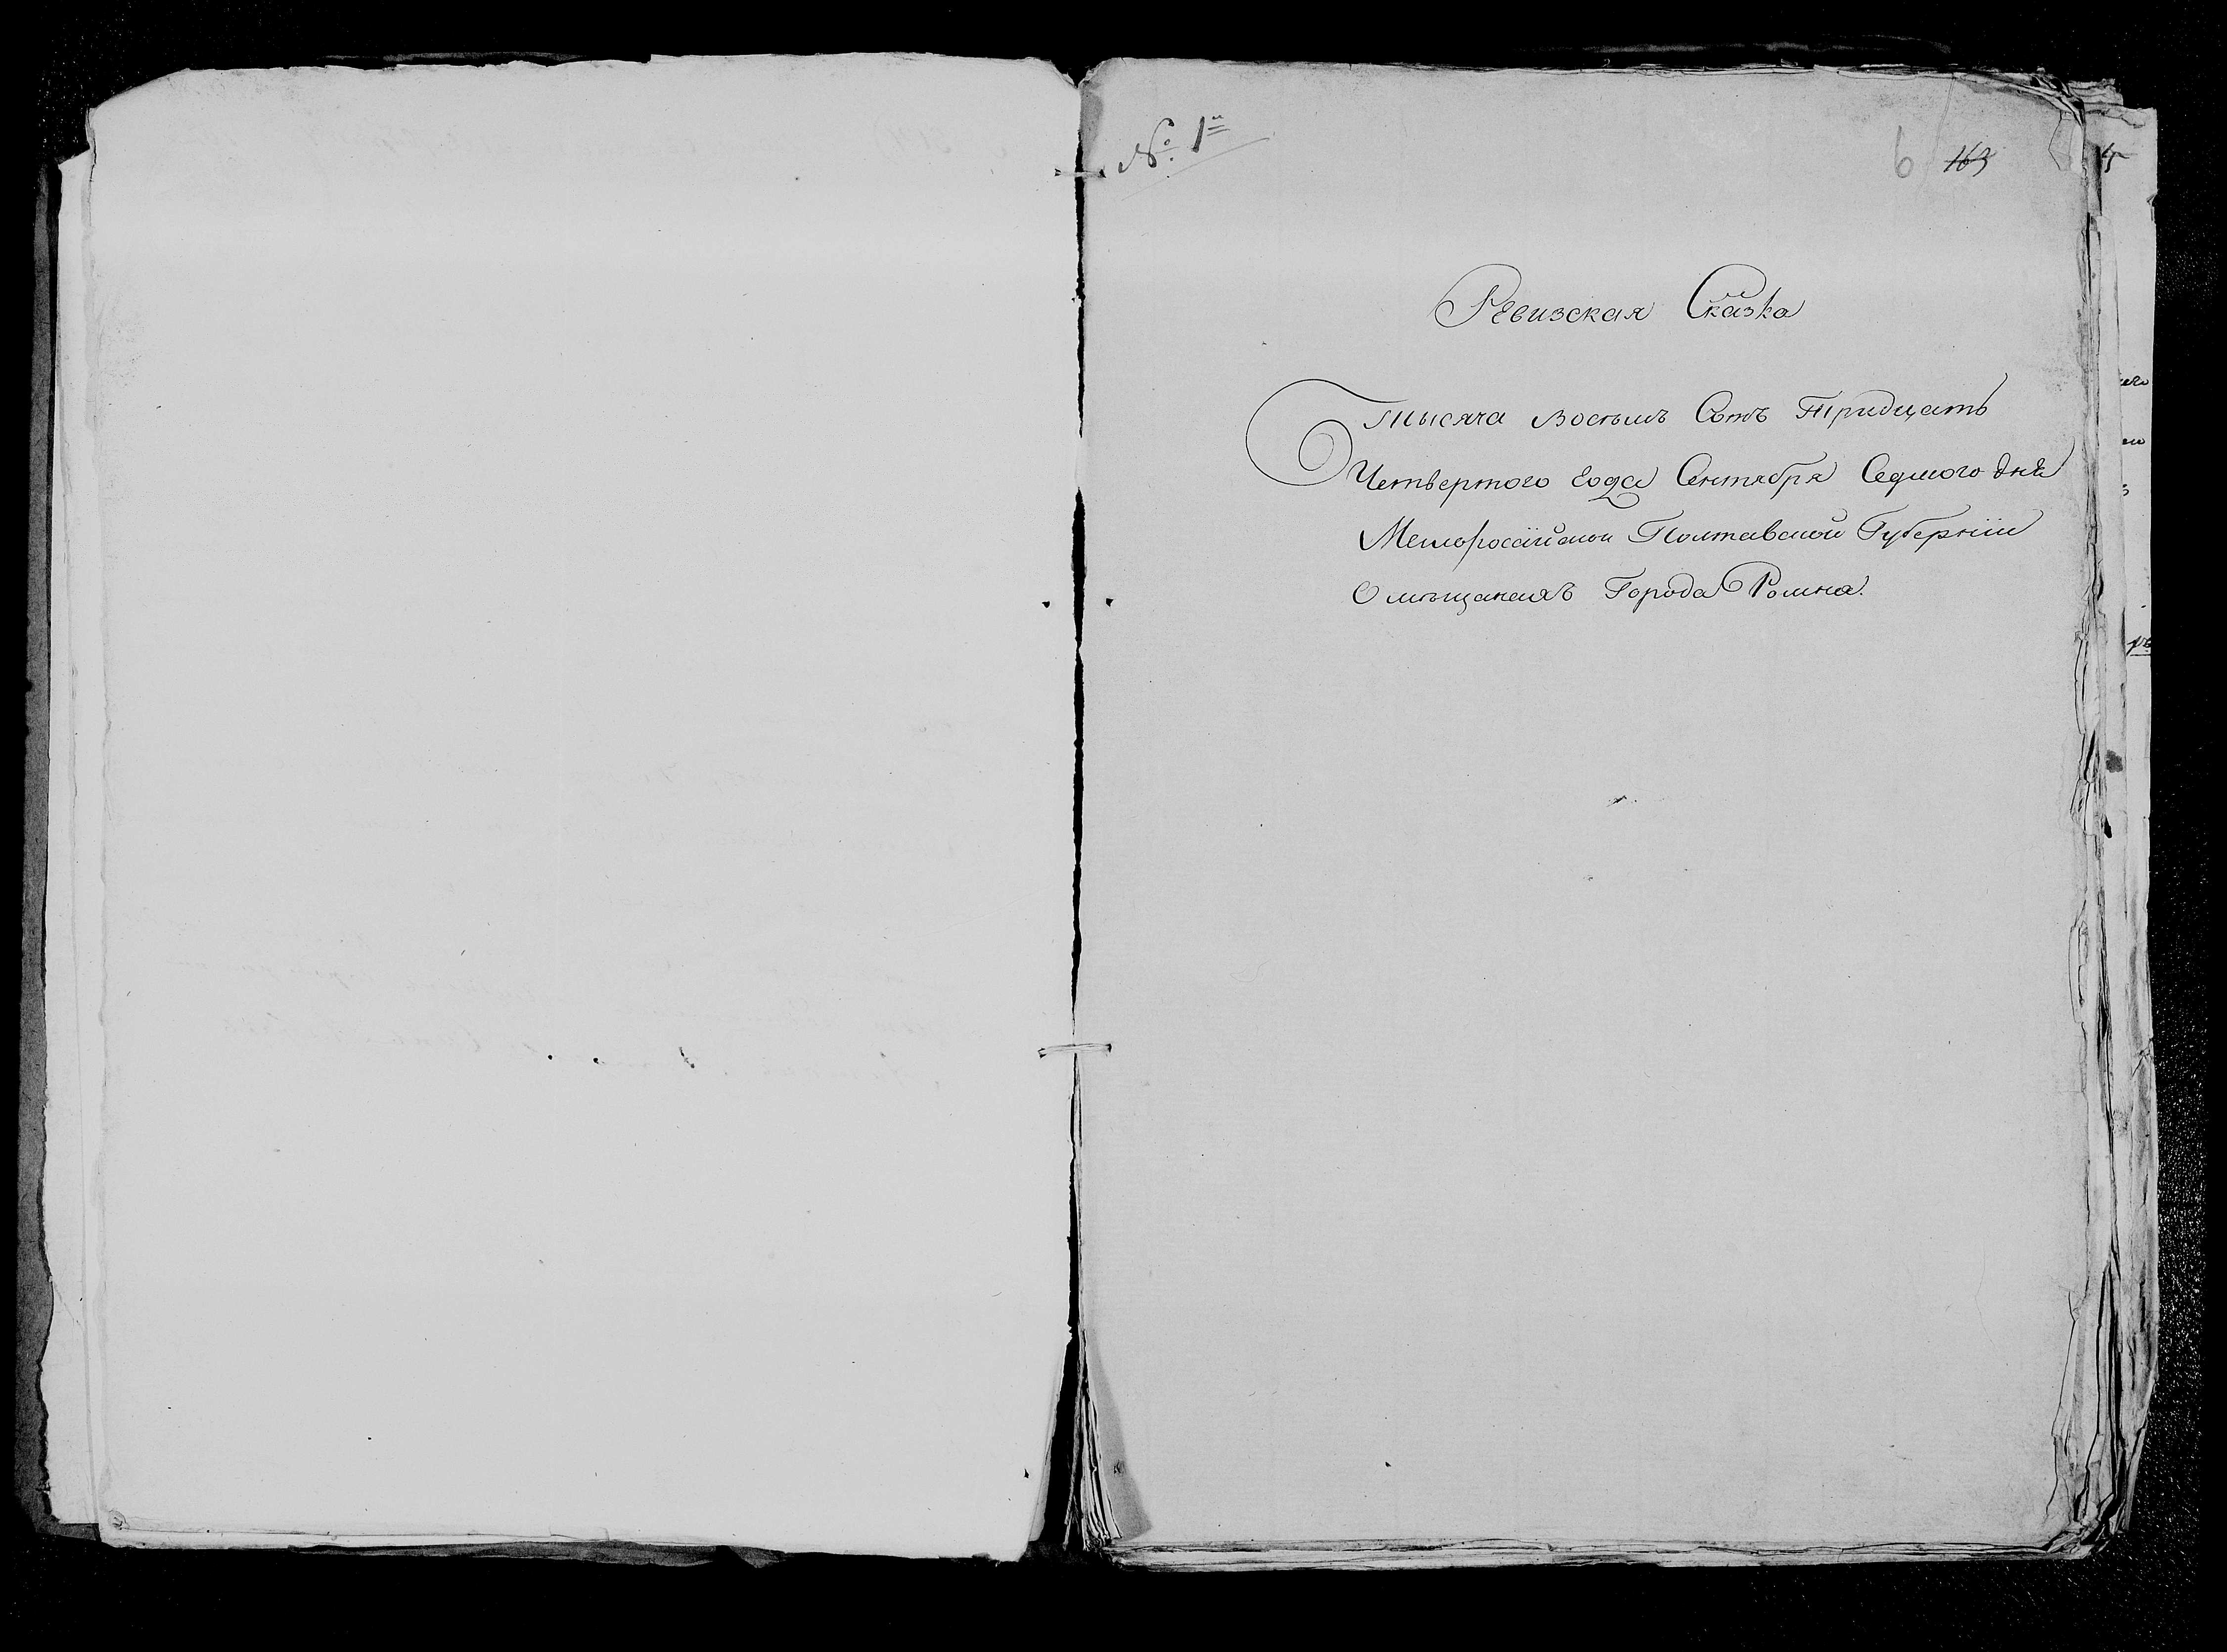 № 1й
6 163
Ревизская Сказка
Тысяча восемъ Сотъ Тридцать
Четвертого года Сентября Седмого дня
Малоросciйской Полтавской Губернiи
О мещанахъ Города Ромна.